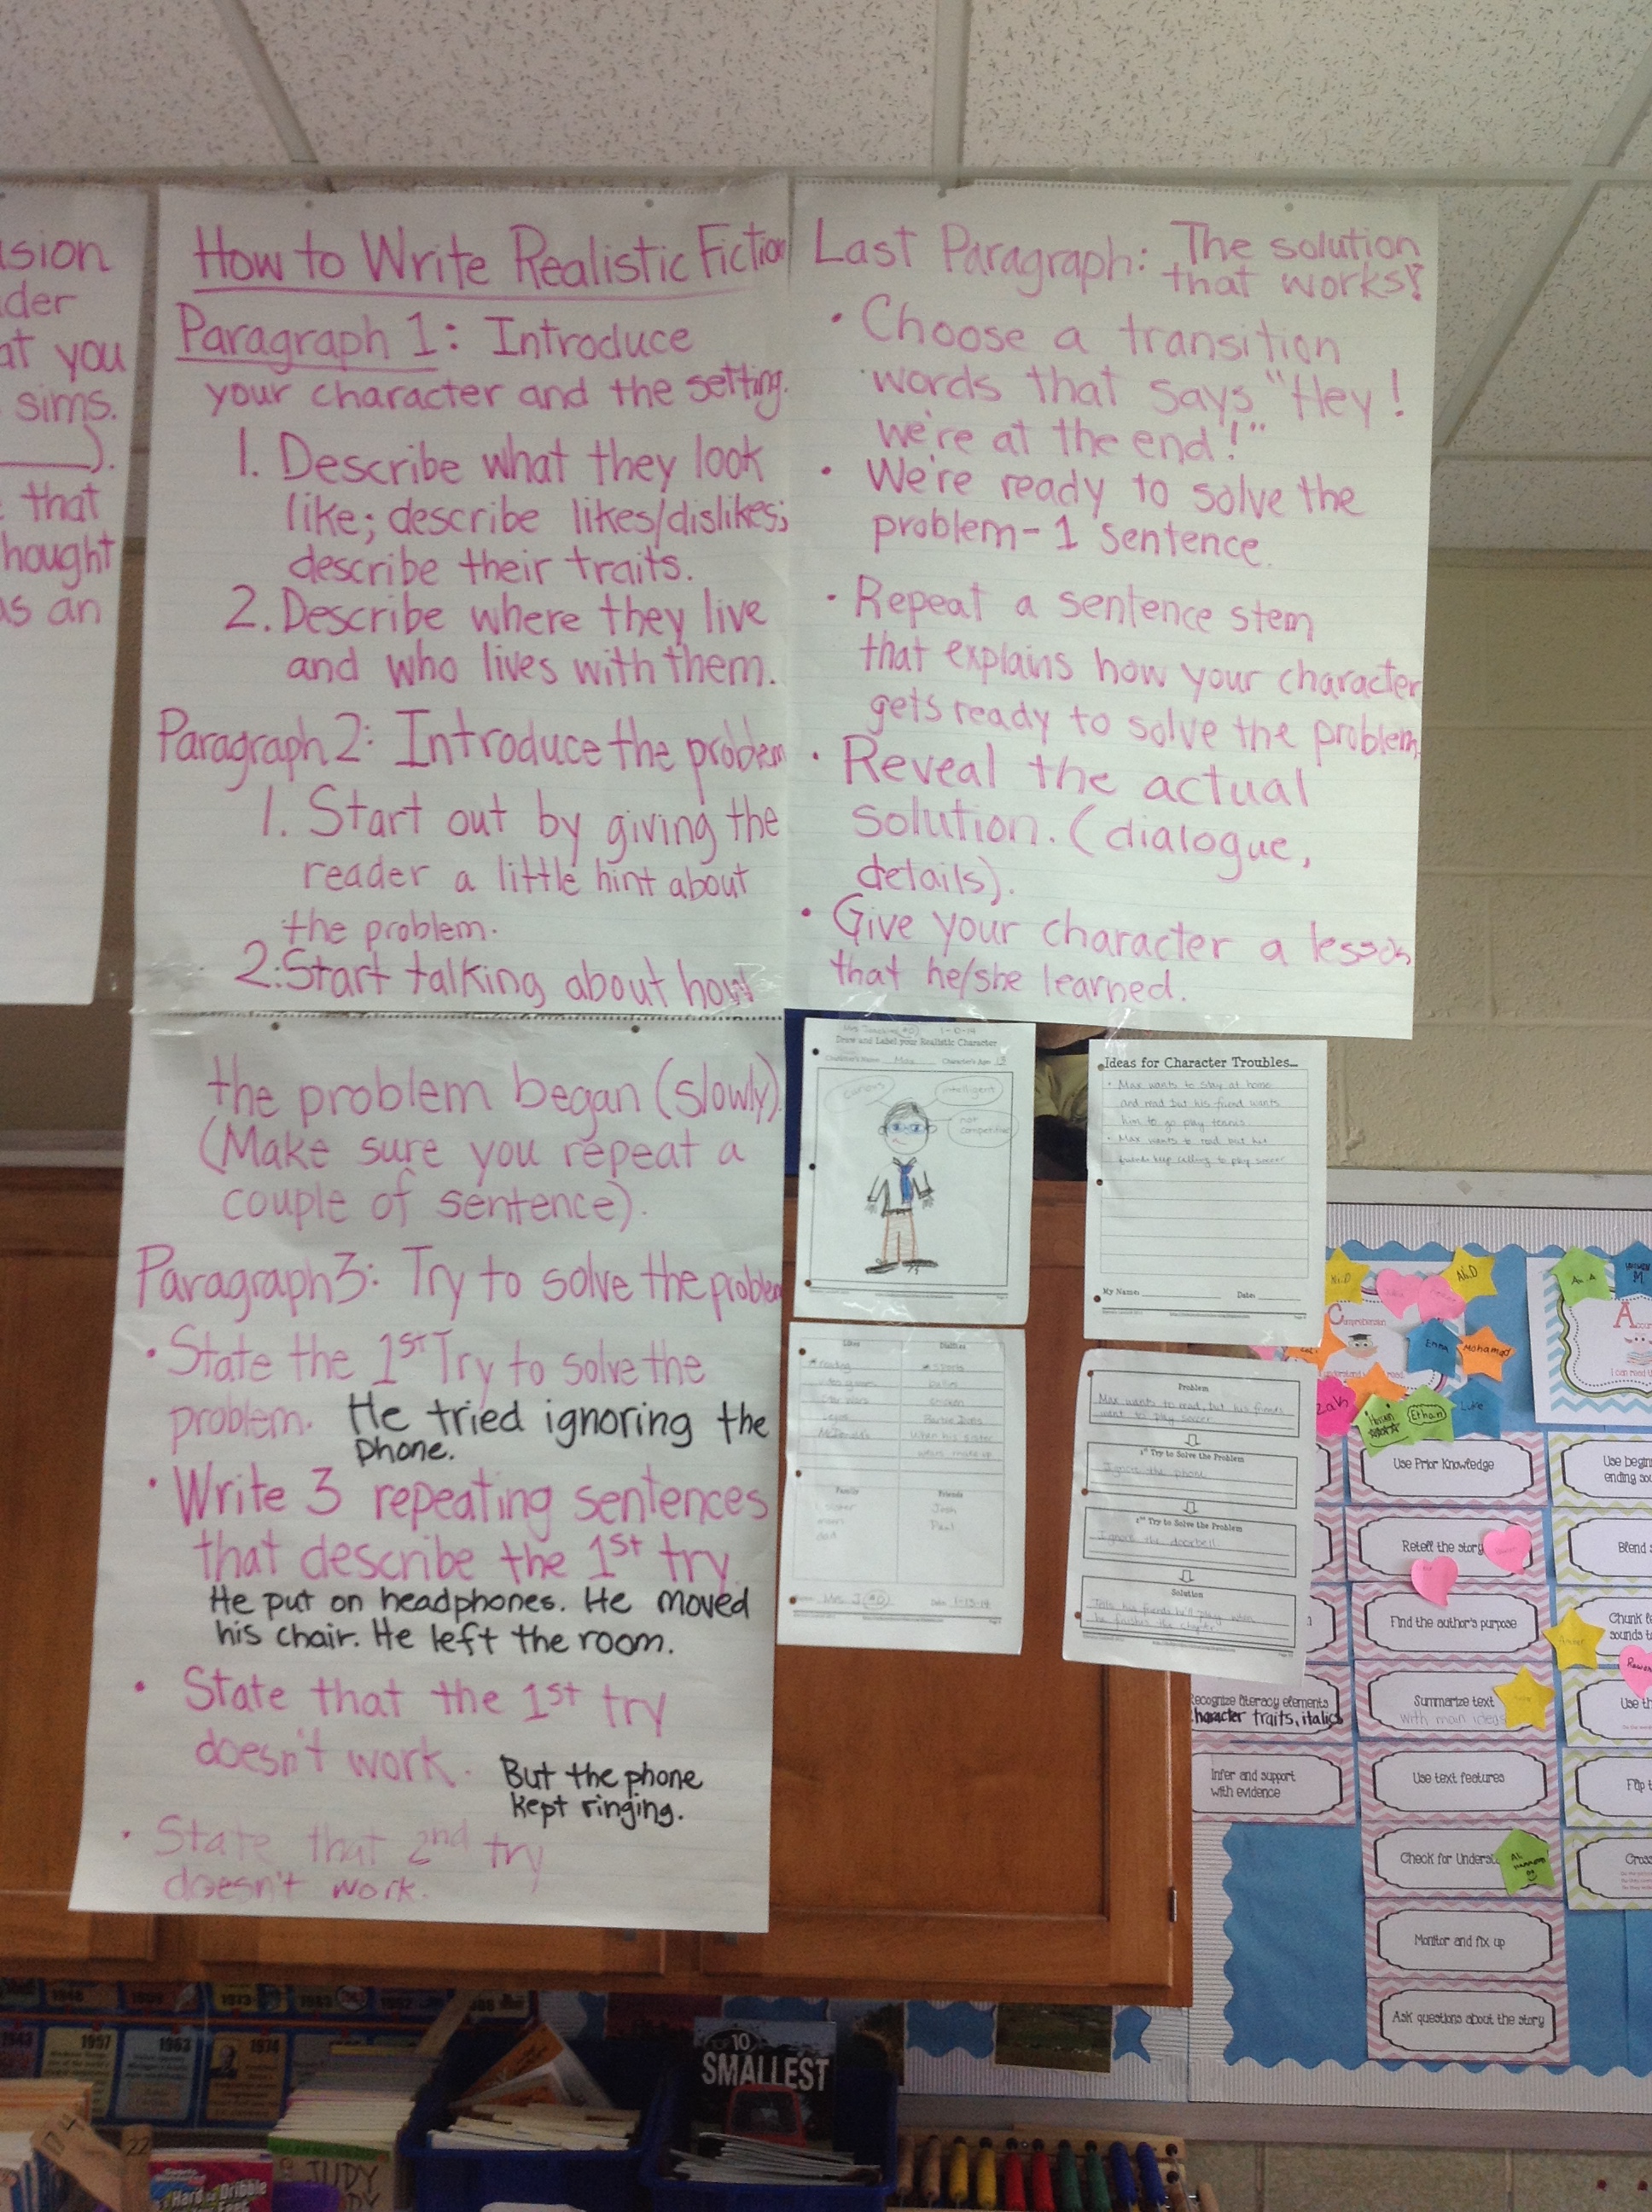 sion
der
at you
sims.
).
that
hought
as an
How to Write Realistic Fiction
Paragraph 1: Introduce
your character and the setting.
1. Describe what they look
like; describe likes/dislikes;
describe their traits.
2. Describe where they live
and who lives with them.
Paragraph 2: Introduce the problem
1. Start out by giving the
reader a little hint about
the problem.
2. Start talking about how
the problem began (slowly).
(Make sure you repeat a
couple of sentence).
Paragraph 3: Try to solve the problem
• State the 1st Try to solve the
problem. He tried ignoring the
phone.
• Write 3 repeating sentences
that describe the 1st try.
He put on headphones. He moved
his chair. He left the room.
• State that the 1st try
doesn't work. But the phone
kept ringing.
• State that 2nd try
doesn't work.
Last Paragraph: The solution
that works!
• Choose a transition
words that says "Hey!
we're at the end!"
• We're ready to solve the
problem - 1 sentence.
• Repeat a sentence stem
that explains how your character
gets ready to solve the problem.
• Reveal the actual
solution. (dialogue,
details).
• Give your character a lesson
that he/she learned.
1-10-14
Draw and Label your Realistic Character
Character's Name Max Character's Age: 13
curious
intelligent
not
competitive
Ideas for Character Troubles...
• Max wants to stay at home
and read but his friend wants
him to go play tennis
• Max wants to read but his
friends keep calling to play soccer
My Name: Date:
Likes Dislikes
reading sports
video games ballet
Star Wars chicken
Legos Barbie Dolls
McDonald's when his sister
wears make up
Family Friends
sister Josh
mom Paul
dad
Mrs. J #0 Date 1-13-14
Problem
Max wants to read, but his friends
want to play soccer
1st Try to Solve the Problem
Ignore the phone
2nd Try to Solve the Problem
Ignore the doorbell
Solution
Tells his friends he'll play when
he finishes the chapter
Ali.D
Ali.D
Comprehension
understand read
Emma
Mohamad
Zak
Hassan
Ethan
Luke
Accur
I can read t
Use Prior Knowledge
Retell the story
Find the author's purpose
Recognize literacy elements
character traits, italics
Summarize text
with main ideas
Infer and support
with evidence
Use text features
Check for Underst
Monitor and fix up
Ask questions about the story
Use begin
ending sou
Blend
Chunk l
sounds t
Use th
Flip t
Cross
1943
1957
1963
1974
10
SMALLEST
22
JUDY
Hard Dribble